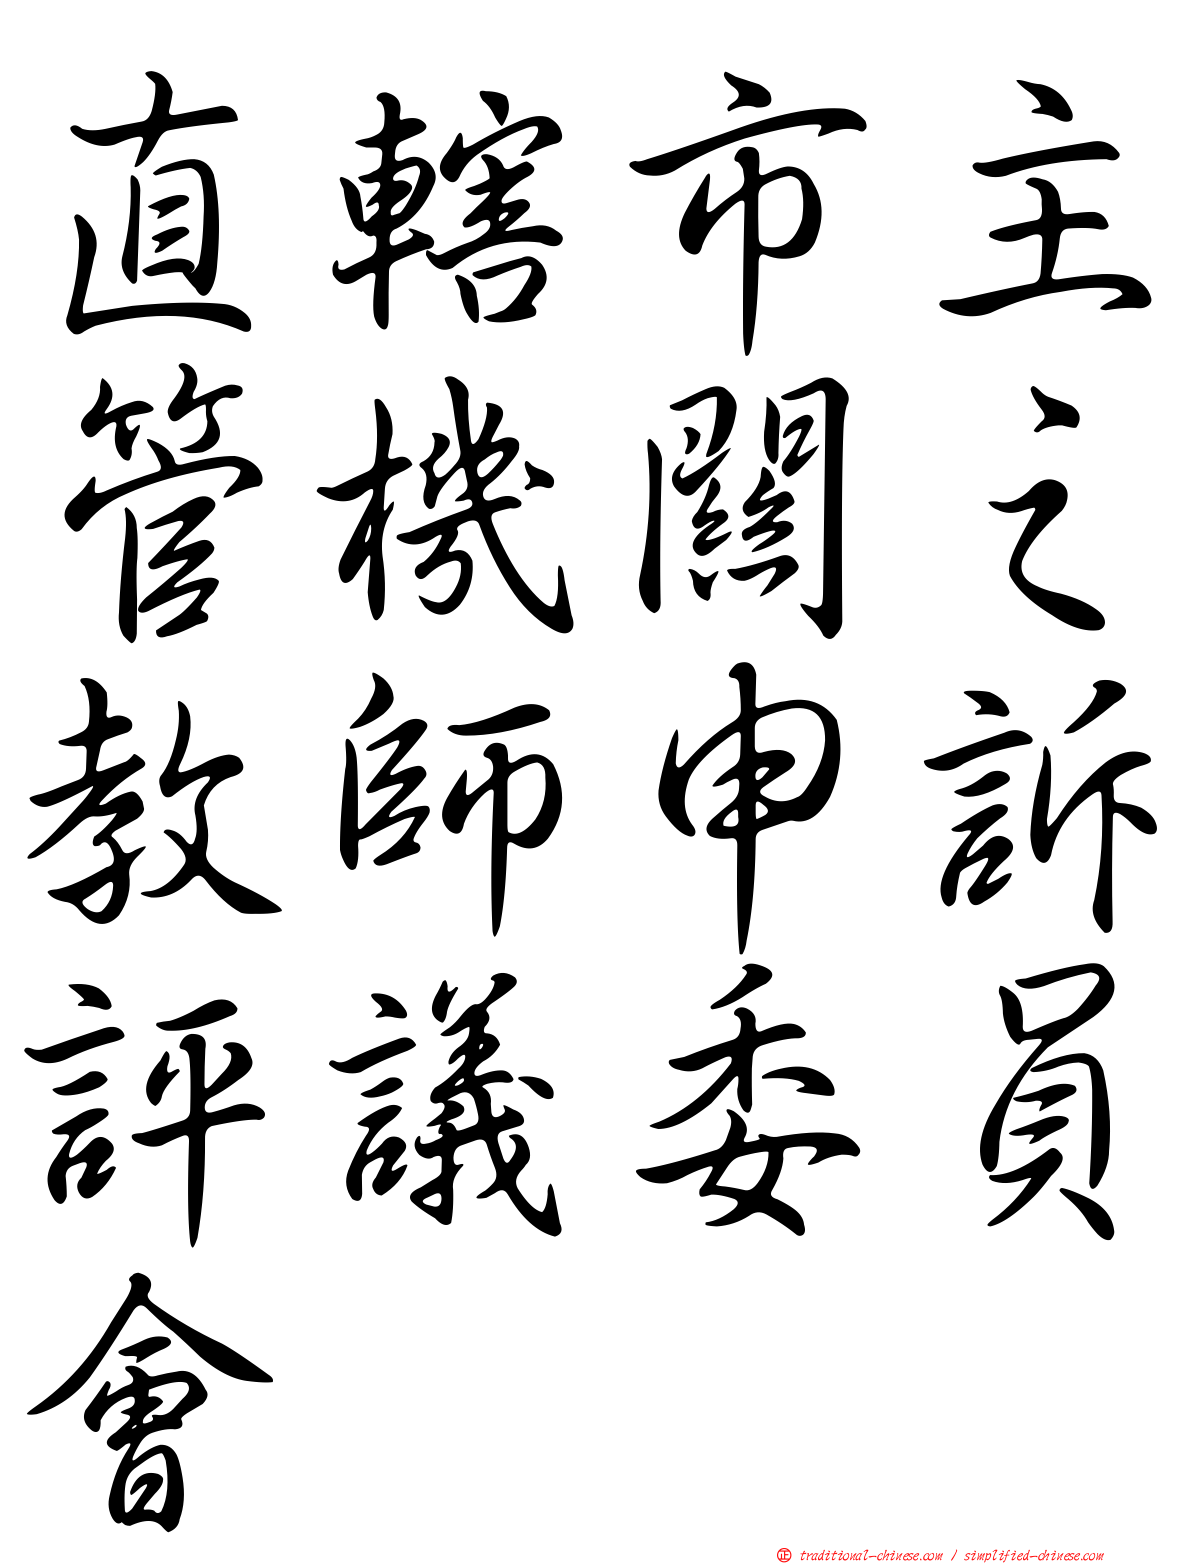 直轄市主
管機關之
教師申訴
評議委員
會
㊣ traditional-chinese.com / simplified-chinese.com